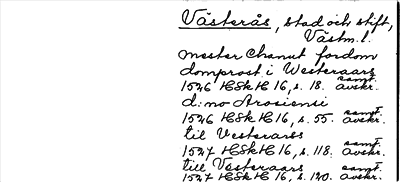 Västerås, stad och stift,
Västm. l.
mester Chanut fordom
domprost i Westeraars
1526 HSH H 16, s. 18. samt. avskr.
d:no Arosiensi
1526 HSH H 16, s. 55. samt. avskr.
til Vesterarss
1527 HSH H 16, s. 118. samt. avskr.
till Vesteraars
1527 HSH H 16, s. 120. samt. avskr.